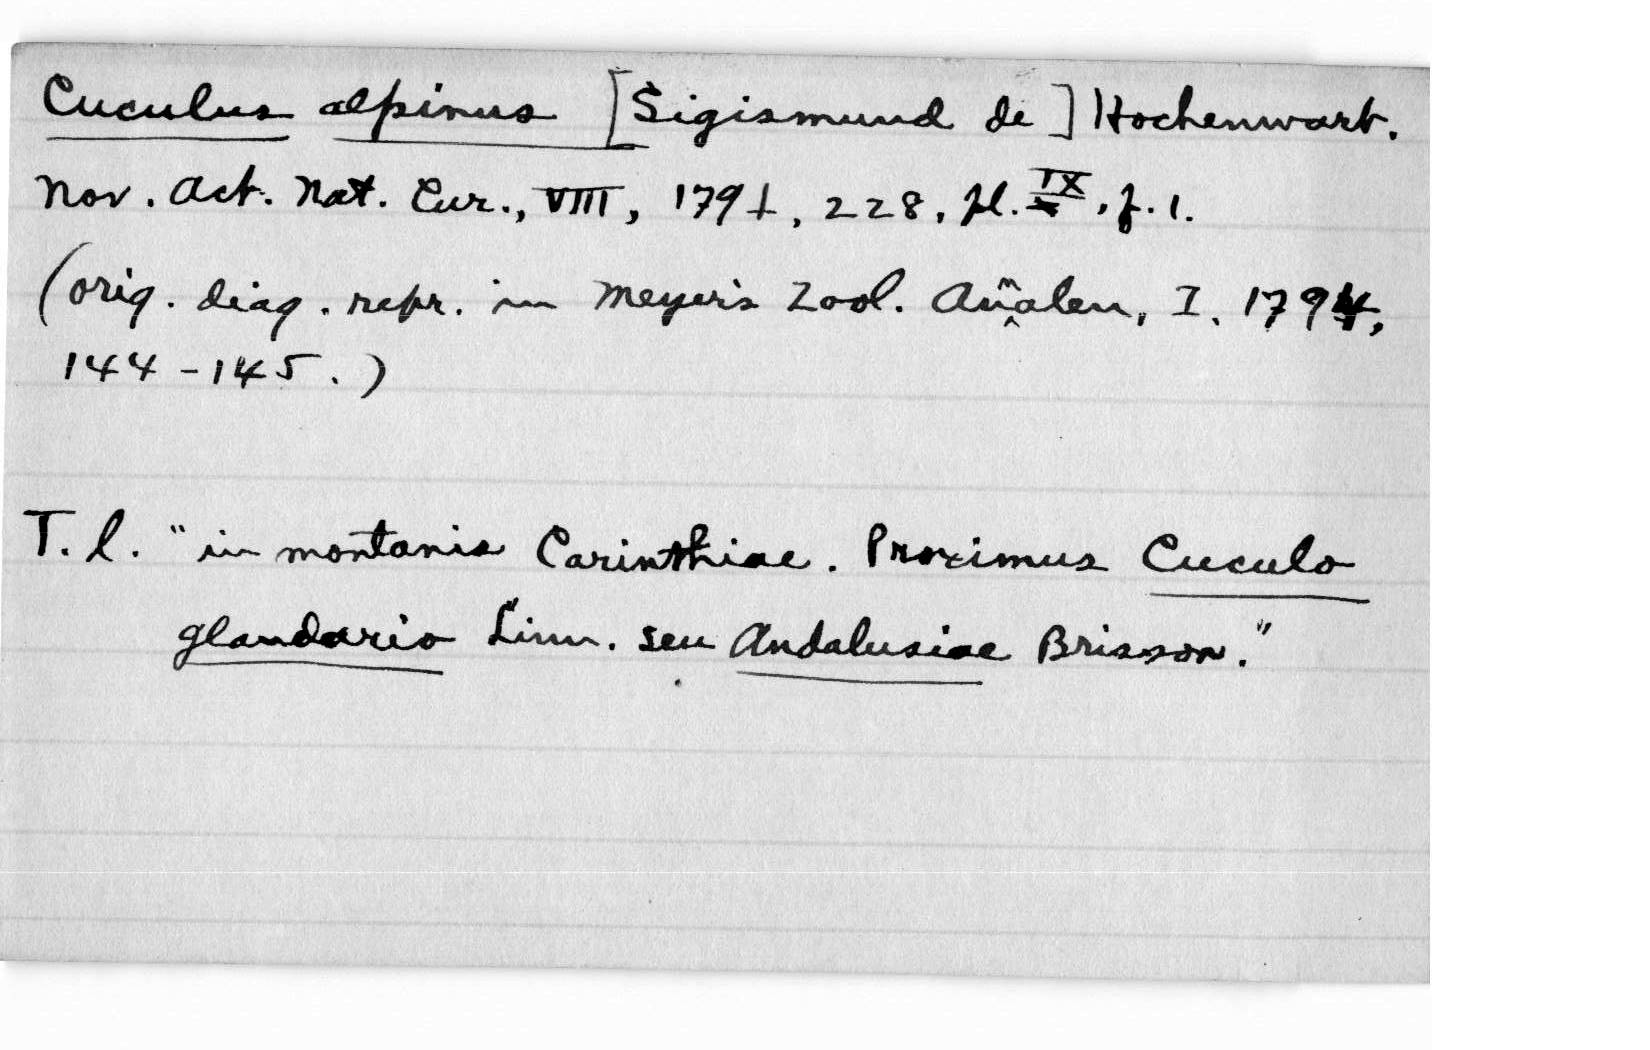 Cuculus alpinus [Sigismund de] Hochenwart.
Nov. Act. Nat. Cur., VIII, 1791, 228, pl. IX, f. 1.
(orig. diag. repr. in Meyer's Zool. Annalen, I. 1794,
144-145.)
T. l. "in montanis Carinthiae. Proximus Cuculo
glandario Linn. seu Andalusiae Brisson."